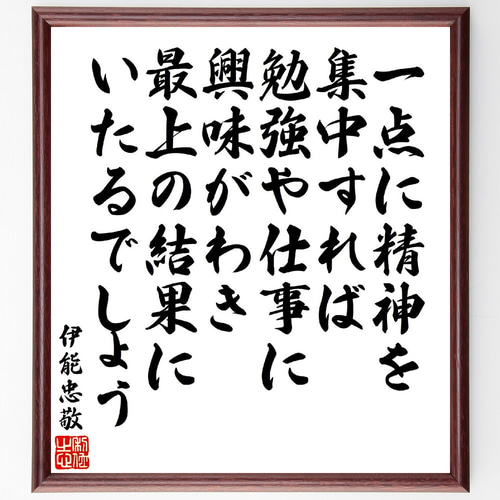 一点に精神を
集中すれば
勉強や仕事に
興味がわき
最上の結果に
いたるでしょう
伊能忠敬